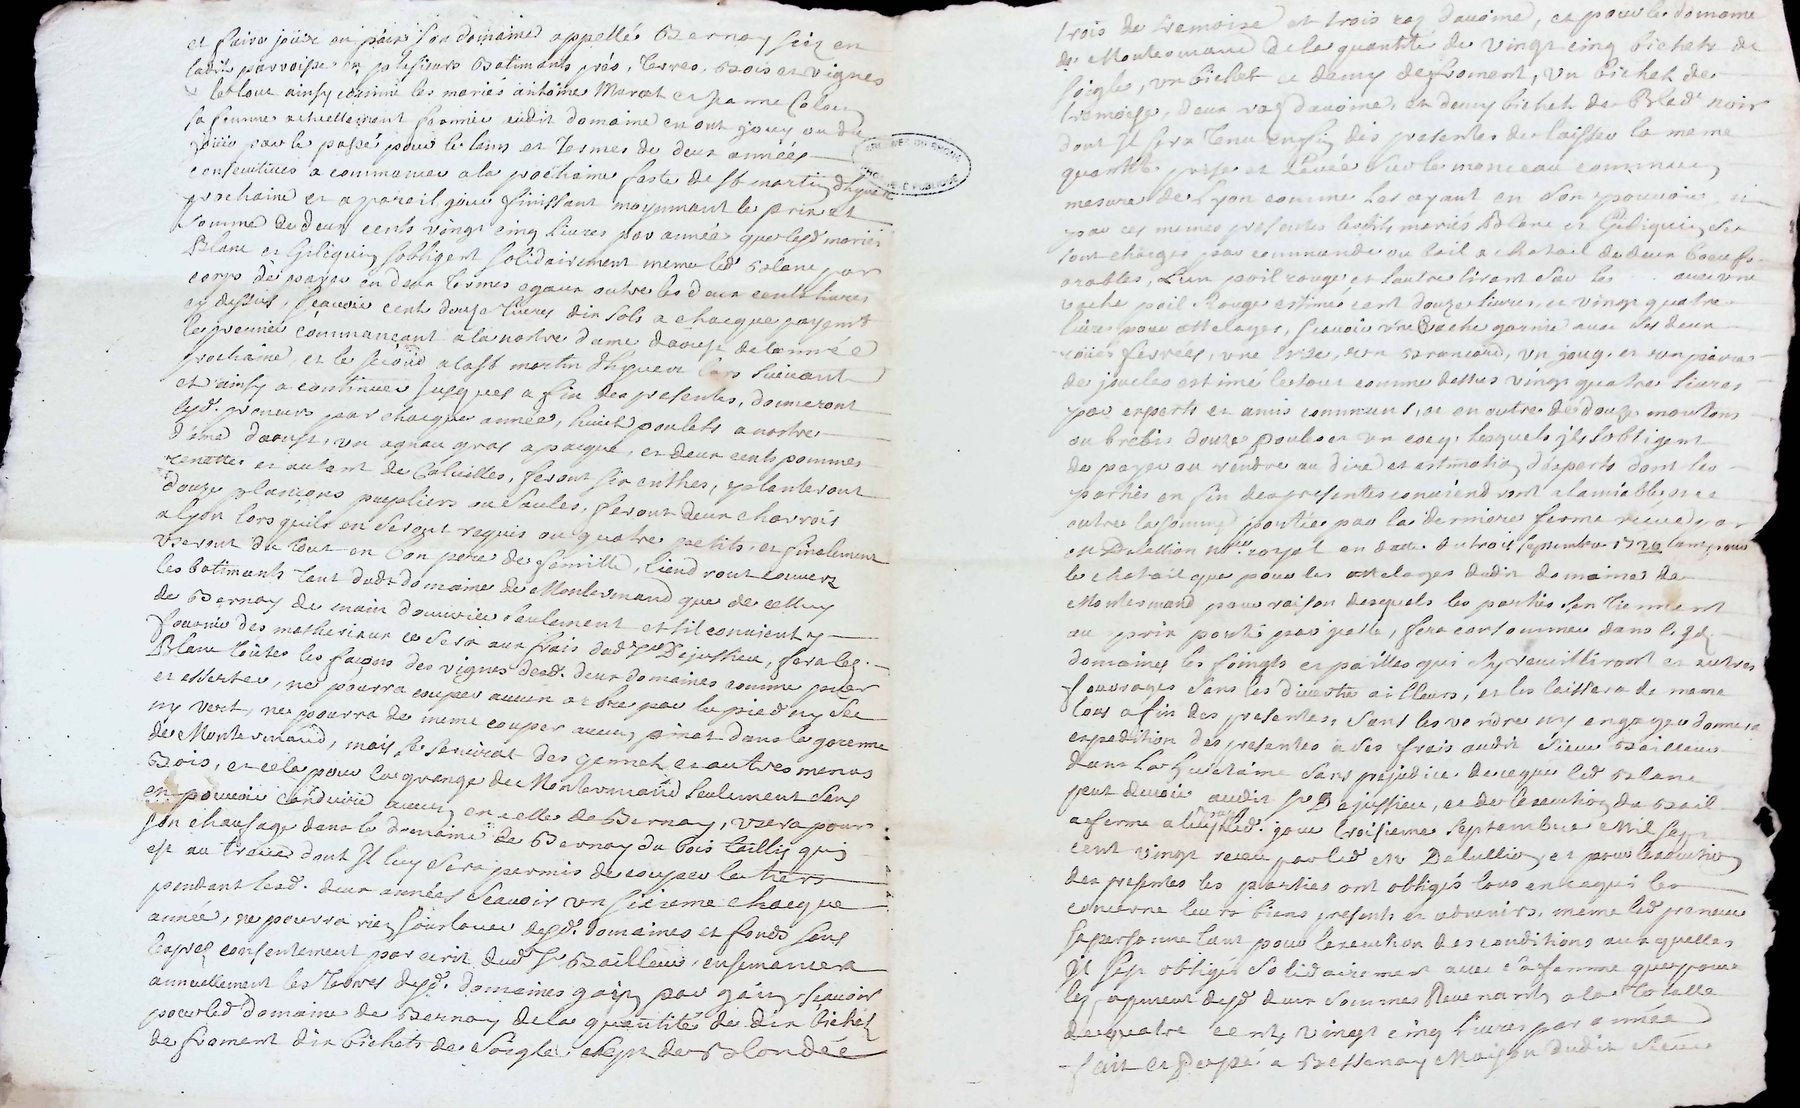 et faire jouir en paix son domaine appellé Bernay sciz en
ladite parroisse en plusieurs batimants prés, terres, bois et vignes
le tout ainsy comme les mariés antoine Murat et jeanne
sa femme actuellement fermier dudit domaine en ont jouy ou du
jouir par le passé pour le tems et termes de deux années
consecutives a commancer a la prochaine feste de st martin dhyver
prochaine et a pareil jour finissant moyennant le prix et
somme de deux cents vingt cinq livres par année que lesd mariés
Blanc et Gesliquin sobligent solidairement meme led Blanc par
corps de payer en deux termes egaux outre les deux cents livres
cy dessus, scavoir cent douze livres dix sols a chacque payemt
le premier commançant a la nostre dame daoust de lannée
prochaine, et le second a la st martin dhyver lors suivant
et ainsy a continuer jusques a fin des presentes, donneront
lesd. preneurs par chacque année, huict poulets a nostre
dame daoust, un agneau gras a pacque, et deux cents pommes
renettes et autant de Calvilles, feront six enthes, planteront
douze plançons peupliers ou saules, feront deux charrois
a lyon lors quils en seront requis ou quatre petits, et finalement
useront du tout en bon pere de famille, tiendront couvert
les batimants tant dudt domaine de Montermand que de celluy
de Bernay de main douvrier seulement et sil convient y
fournir des matheriaux ce sera aux frais dud sr Dejussieu, fera led.
Blanc toutes les façons des vignes desd. deux domaines comme
et , ne pourra couper aucun arbre par le pied ny sec
ny vert, ne pourra de meme couper aucun pinet dans la garenne
de Montermand, mais se servirat des gennets et autres menus
Bois, et cela pour la grange de Montermand seulement sans
en pouvoir conduire aucun en celle de Bernay, usera pour
son chaufage dans le domaine de Bernay du bois taillis qui
est au dont Il luy sera permis de couper le tiers
pendant lesd. deux années scavoir un sixieme chacque
année, ne pourra rien souslouer desd. domaines et fonds sans
lexpres consentement par ecrit dud sr Bailleur, ensemancera
annuellement les terres desd. domaines gain par gain scavoir
pour led domaine de Bernay de la quantité de dix bichets
de froment dix bichets de seigle sept de Blondée
trois de tremoise et trois raz davoine, et pour le domaine
de Montermand de la quantité de vingt cinq bichets de
seigle, un bichet et demy de froment, un bichet de
tremoise, deux raz davoine, et demy bichet de Bled noir
dont Il sera tenu en fin des presentes de laisser la meme
quantité prise et levée sur le monceau commun
mesure de Lyon comme les ayant en son pouvoir,
par ces memes presentes lesdits mariés Blanc et Gesliquin se
sont chargés par commande ou bail a chetail de deux boeufs
arables, l'un poil rouge et lautre tirant sur le avec une
vache poil rouge estimés cent douze livres, et vingt quatre
livres pour attelages, scavoir une garnie avec ses deux
roues ferrées, une , un , un joug, et un paire
de joucles estimé le tout comme dessus vingt quatre livres
par experts et amis communs, et en outre de douze moutons
ou brebis douze poules et un cocq, lesquels ils sobligent
de payer ou rendre au dire et estimation d'experts dont les
parties en fin des presentes conviendront a lamiable,
outre la somme portée par la derniere ferme receu par
me Delullion nore royal en datte du trois septembre 1720 tant pour
le chetail que pour les attelages dudit domaine de
Montermand pour raison desquels les parties sen tiennent
au prix porté par jcelle, fera consommer dans lesd.
domaines les foings et pailles qui sy recuilliront et autres
fourrages sans les divertir ailleurs, et les laissera de meme
lors a fin des presentes sans les vendre ny engager donnera
expedition des presentes a ses frais audit sieur Bailleur
dans la huictaine sans prejudice de ce que led Blanc
peut devoir audit sr Dejussieu, et de lexecution du Bail
a ferme a luy led. jour troisieme septembre Mil sept
cent vingt receu par led me Delullion et pour lexecution
des presentes les parties ont obligés tous en ce qui les
concerne leurs biens presents et advenirs, meme led preneur
sa personne tant pour lexecution des conditions auxquelles
Il sest obligé solidairement avec sa femme que pour
le payement desd deux sommes Revenants a la totalle
de quatre cents vingt cinq livres par année
fait et passé a Bessenay Maison dudit sieur